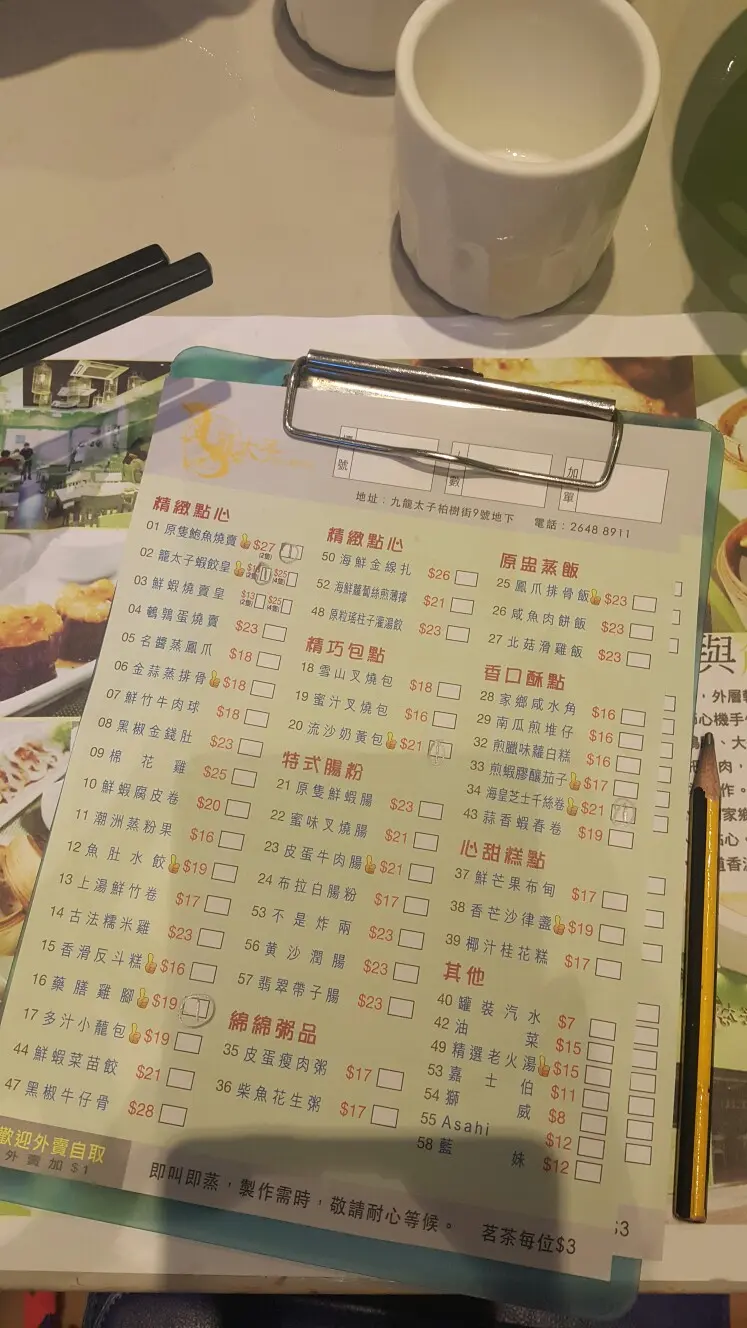 加單
地址：九龍太子柏樹街9號地下 電話：2648 8911
精緻點心
01 原隻鮑魚燒賣 $27 (2隻)
02 龍太子蝦餃皇 (2隻) $25 (4隻)
03 鮮蝦燒賣皇 $13 (2隻) $25 (4隻)
04 鵪鶉蛋燒賣 $23
05 名醬蒸鳳爪 $18
06 金蒜蒸排骨 $18
07 鮮竹牛肉球 $18
08 黑椒金錢肚 $23
09 棉花雞 $25
10 鮮蝦腐皮卷 $20
11 潮洲蒸粉果 $16
12 魚肚水餃 $19
13 上湯鮮竹卷 $17
14 古法糯米雞 $23
15 香滑反斗糕 $16
16 藥膳雞腳 $19
17 多汁小籠包 $19
44 鮮蝦菜苗餃 $21
47 黑椒牛仔骨 $28
精緻點心
50 海鮮金線扎 $26
52 海鮮蘿蔔絲煎薄撐 $21
48 原粒瑤柱子灌湯餃 $23
精巧包點
18 雪山叉燒包 $18
19 蜜汁叉燒包 $16
20 流沙奶黃包 $21
特式腸粉
21 原隻鮮蝦腸 $23
22 蜜味叉燒腸 $21
23 皮蛋牛肉腸 $21
24 布拉白腸粉 $17
53 不是炸兩 $23
56 黄沙潤腸 $23
57 翡翠帶子腸 $23
綿綿粥品
35 皮蛋瘦肉粥 $17
36 柴魚花生粥 $17
原盅蒸飯
25 鳳爪排骨飯 $23
26 咸魚肉餅飯 $23
27 北菇滑雞飯 $23
香口酥點
28 家鄉咸水角 $16
29 南瓜煎堆仔 $16
32 煎臘味蘿白糕 $16
33 煎蝦膠釀茄子 $17
34 海皇芝士千絲卷 $21
43 蒜香蝦春卷 $19
心甜糕點
37 鮮芒果布甸 $17
38 香芒沙律盞 $19
39 椰汁桂花糕 $17
其他
40 罐裝汽水 $7
42 油菜 $15
49 精選老火湯 $15
53 嘉士伯 $11
54 獅威 $8
55 Asahi $12
58 藍妹 $12
歡迎外賣自取
外賣加 $1
即叫即蒸，製作需時，敬請耐心等候。 茗茶每位$3
$3
與